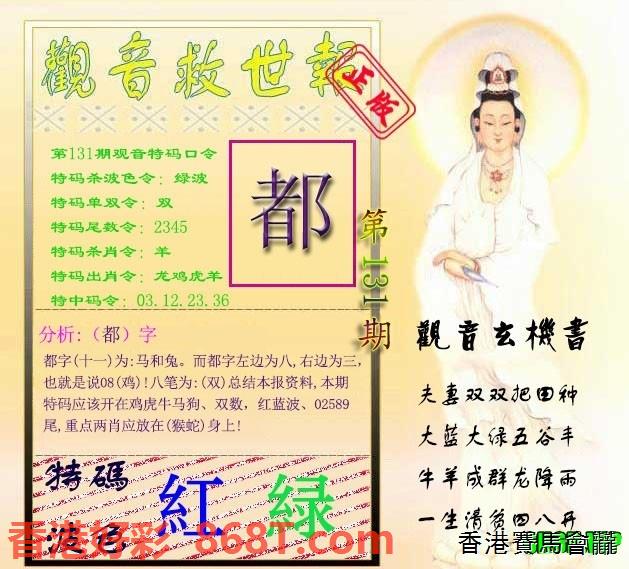 觀音救世報
正版
第131期观音特码口令
特码杀波色令: 绿波
特码单双令: 双
特码尾数令: 2345
特码杀肖令: 羊
特码出肖令: 龙鸡虎羊
特中码令: 03.12.23.36
都
第131期
分析:（都）字
都字(十一)为:马和兔。而都字左边为八,右边为三,
也就是说08(鸡)!八笔为:(双)总结本报资料,本期
特码应该开在鸡虎牛马狗、双数，红蓝波、02589
尾,重点两肖应放在(猴蛇)身上!
特碼
波色
紅 绿
觀音玄機書
夫妻双双把田种
大蓝大绿五谷丰
牛羊成群龙降雨
一生清贫四八开
香港好彩 868T.com
香港賽馬會